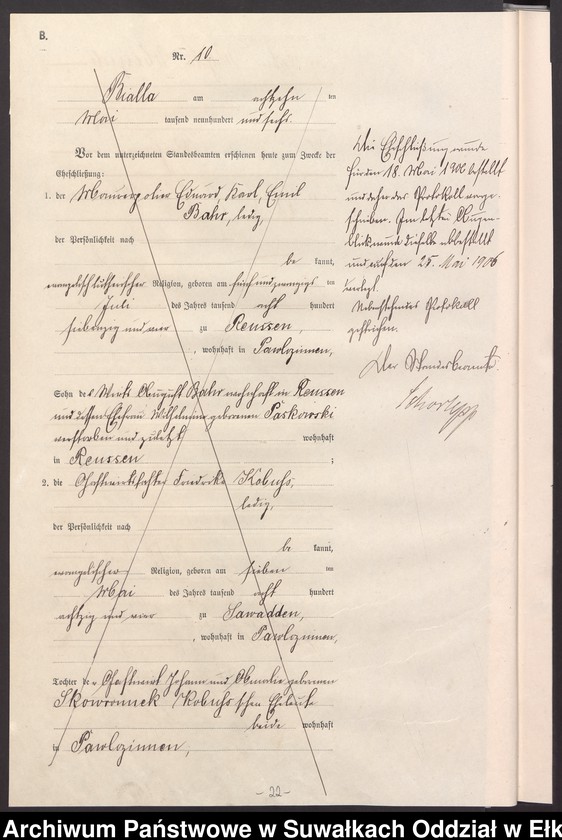 B.
Nr. 10
Bialla am achtzehn ten
Mai tausend neunhundert und sechs.
Vor dem unterzeichneten Standesbeamten erschienen heute zum Zwecke der
Eheschließung:
1. der Maurerpolier Eduard, Karl, Emil
Bahr, ledig,
der Persönlichkeit nach
be kannt,
evangelisch lutherischer Religion, geboren am fünf und zwanzigs ten
Juli des Jahres tausend acht hundert
siebenzig und vier zu Reussen,
, wohnhaft in Pawlozinnen,
Sohn des Wirts August Bahr wohnhaft in Reussen
und dessen Ehefrau Wilhelmine geborenen Paskowski
verstorben und zuletzt wohnhaft
in Reussen ;
2. die Gastwirtstochter Kobuss,
ledig,
der Persönlichkeit nach
be kannt,
evangelischer Religion, geboren am sieben ten
Mai des Jahres tausend acht hundert
achtzig und vier zu Sawadden,
, wohnhaft in Pawlozinnen,
Tochter der Gastwirt Johann und Amalie geborenen
Skowronnek Kobuss'schen Eheleute
beide wohnhaft
in Pawlozinnen,
- 22 -
Die Eheschließung wurde
für den 18. Mai 1906 bestellt
und daher das Protokoll vorge-
schrieben. Im letzten Augen-
blick wurde dieselbe abbestellt
und auf den 25. Mai 1906
verlegt.
Nebenstehendes Protokoll
gestrichen.
Der Standesbeamte.
Archiwum Państwowe w Suwałkach Oddział w Ełk